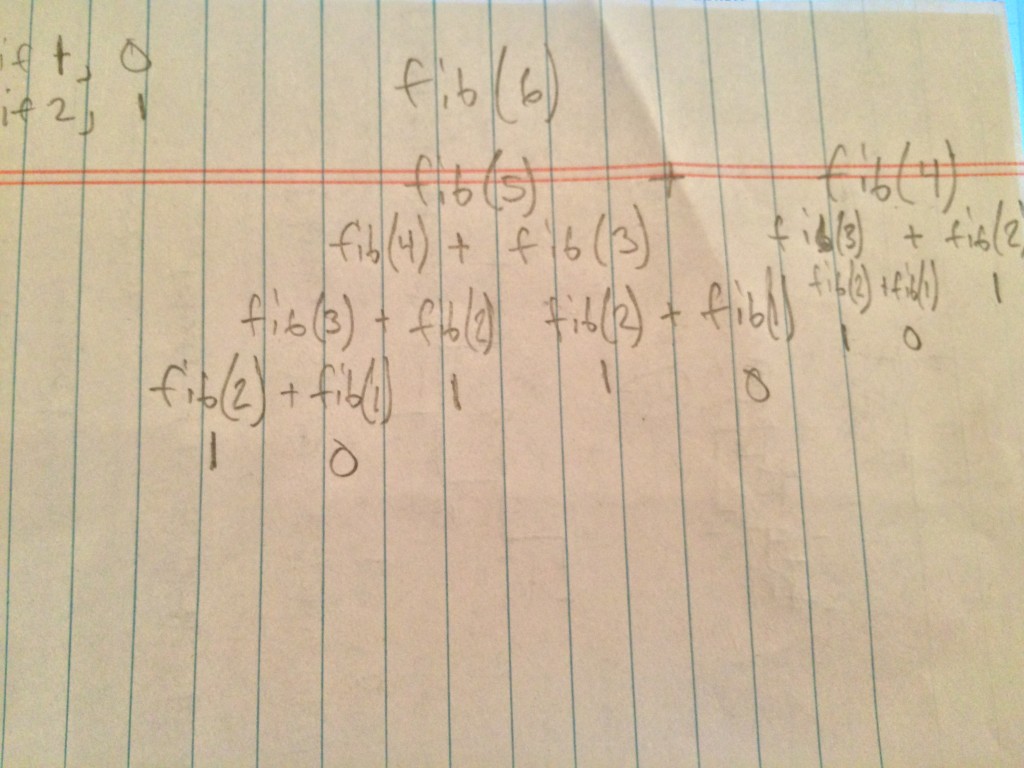 if 1, 0
if 2, 1
fib(6)
fib(5) + fib(4)
fib(4) + fib(3) fib(3) + fib(2)
fib(3) + fib(2) fib(2) + fib(1) fib(2) + fib(1) 1
1 0
fib(2) + fib(1) 1 1 0
1 0